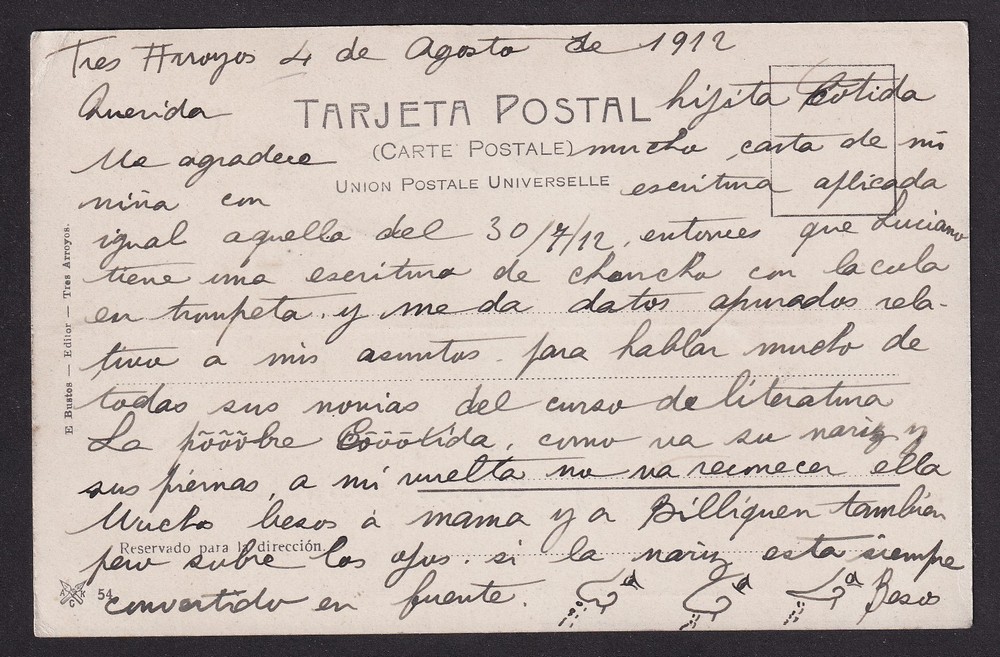 Tres Arroyos 4 de Agosto de 1912
Querida hijita Cotida
TARJETA POSTAL
Me agradece mucho carta de mi
(CARTE POSTALE)
niña con escritura aplicada
UNION POSTALE UNIVERSELLE
igual aquella del 30/7/12, entonces que Luciano
tiene una escritura de chancho con la cola
en trompeta, y me da datos apurados rela-
tivo a mis asuntos. para hablar mucho de
todas sus novias del curso de literatura
La põõõbre Cõõõtida, como va su nariz y
sus piernas, a mi vuelta no va reconocer ella
Mucho besos á mama y a Billiquen también
pero sobre los ojos. si la nariz esta siempre
Reservado para la dirección.
convertido en fuente. Besos
54
E. Bustos — Editor — Tres Arroyos.